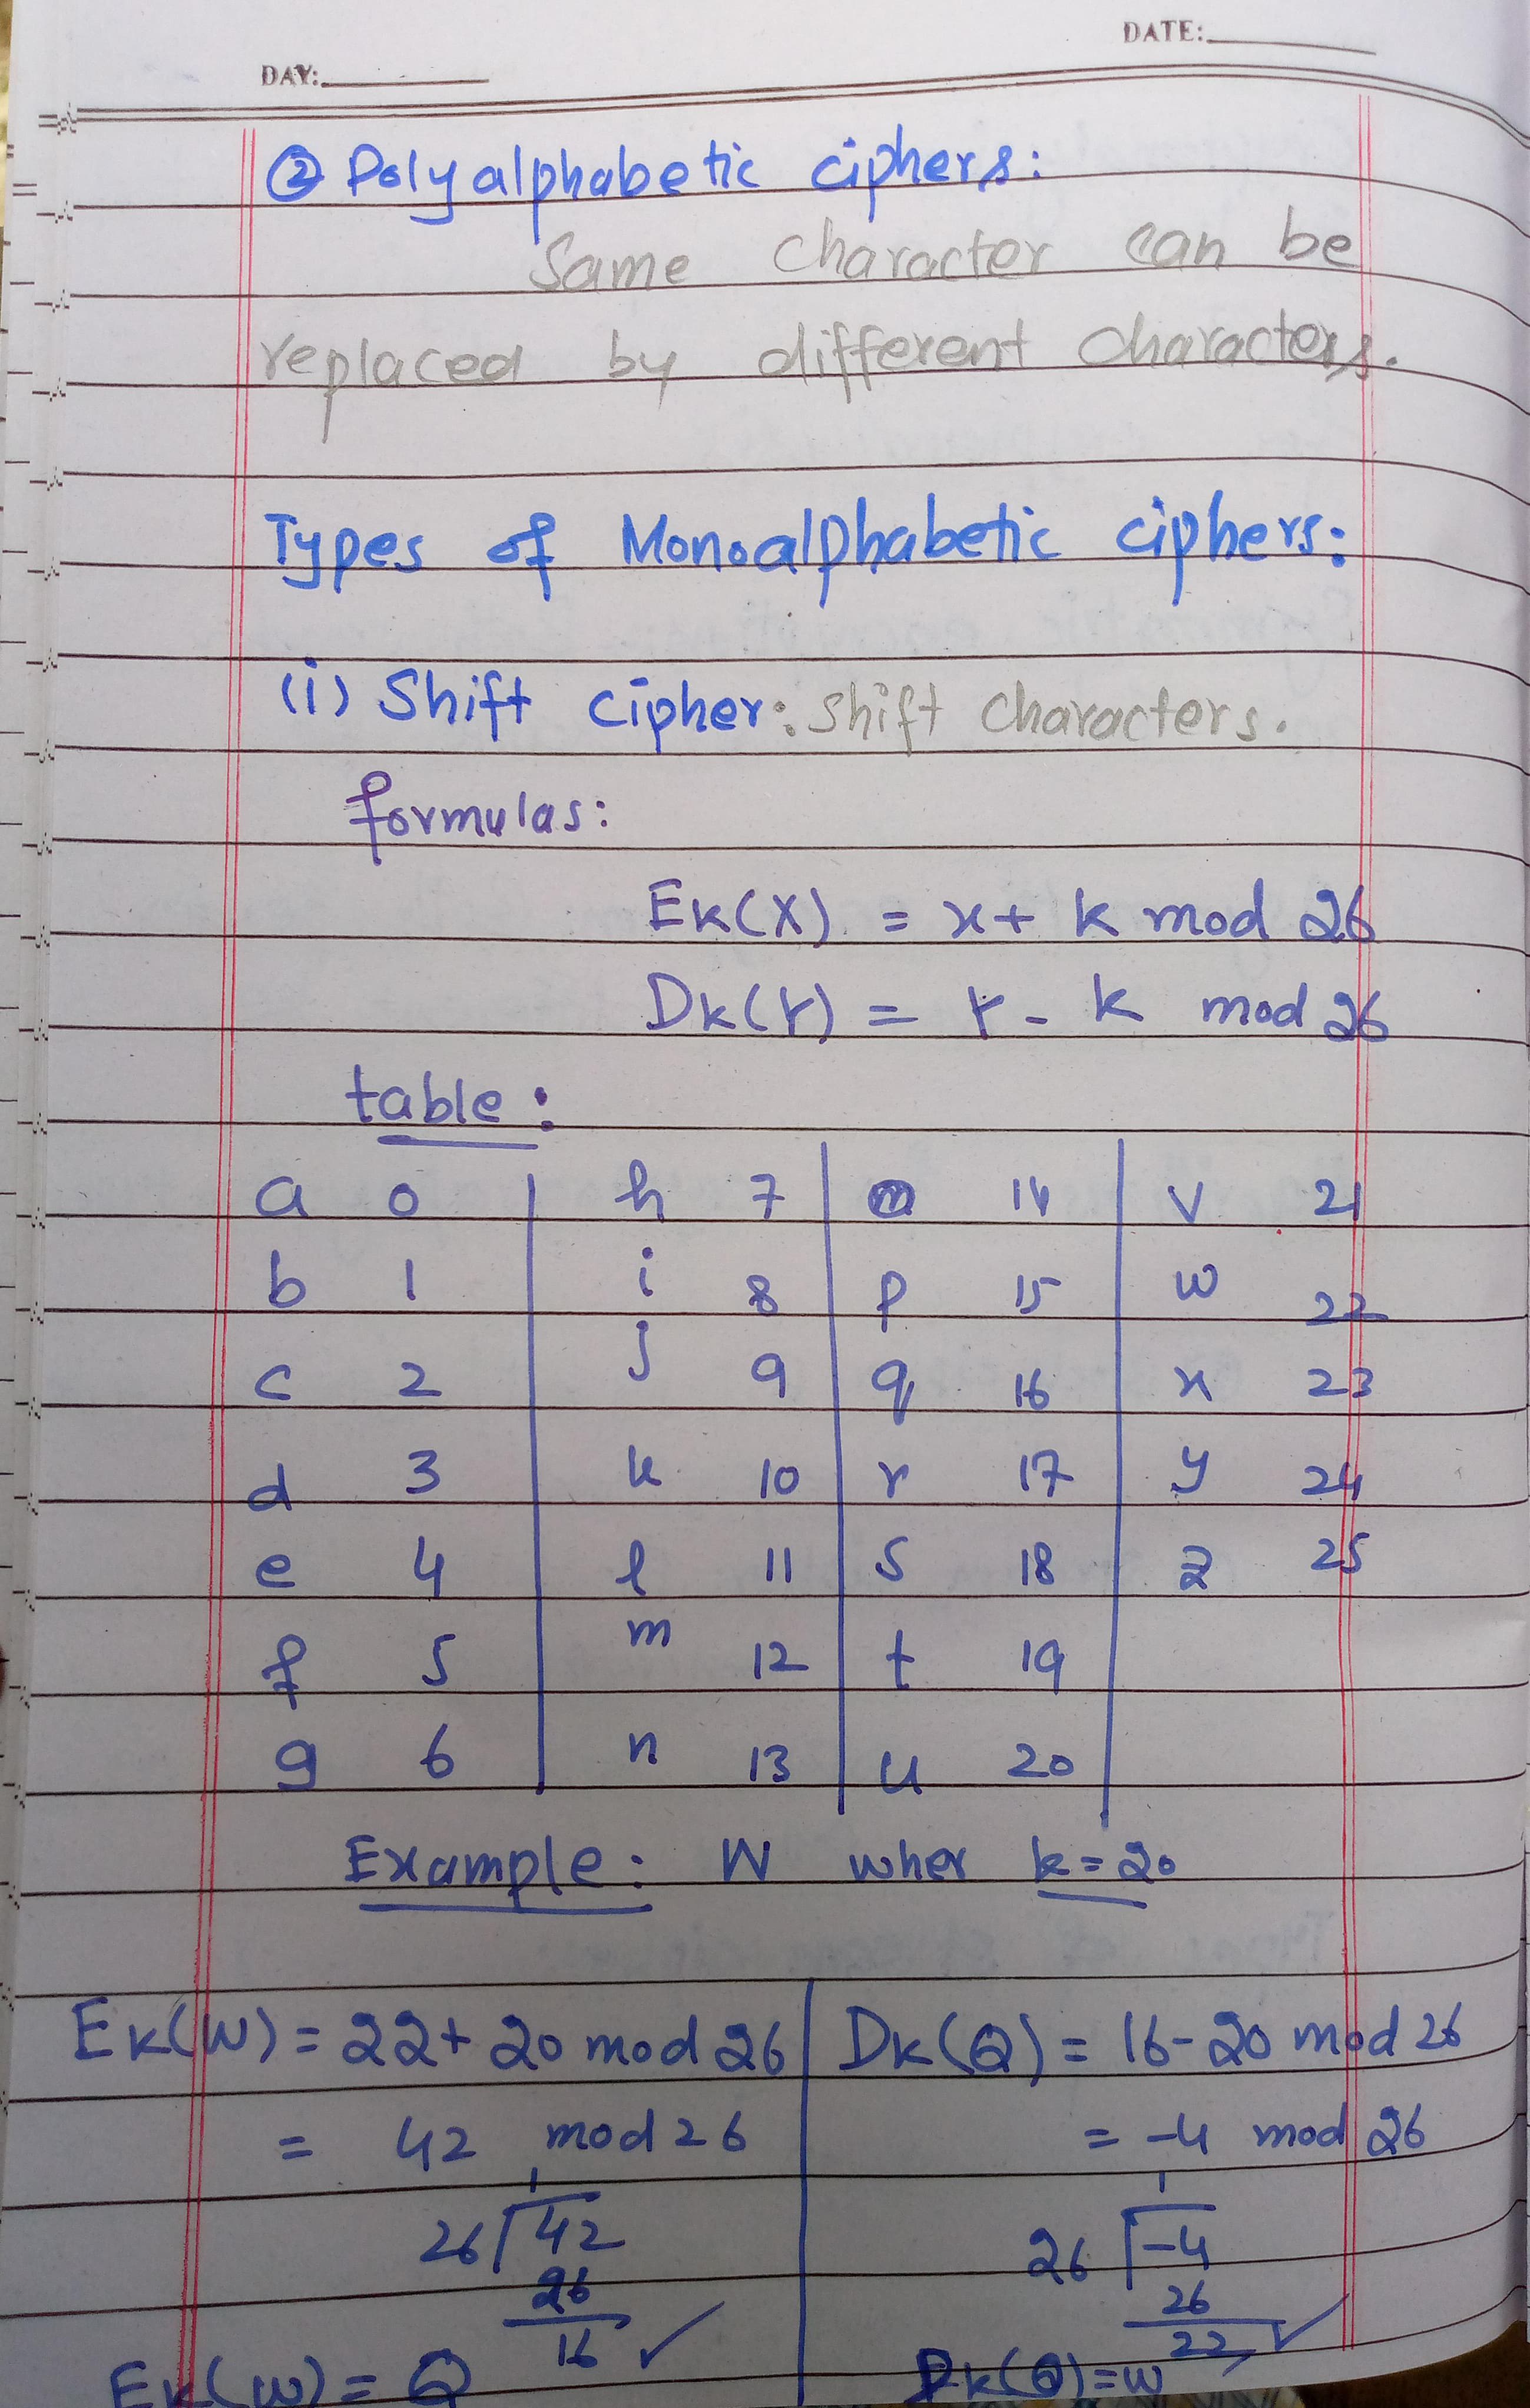 DATE:
DAY:
② Polyalphabetic ciphers:
Same character can be
replaced by different characters.
Types of Monoalphabetic ciphers:
(i) Shift cipher: shift characters.
formulas:
Ek(X) = x + k mod 26
Dk(Y) = Y - k mod 26
table:
a 0 h 7 o 14 v 21
b 1 i 8 p 15 w 22
c 2 j 9 q 16 x 23
d 3 k 10 r 17 y 24
e 4 l 11 s 18 z 25
f 5 m 12 t 19
g 6 n 13 u 20
Example: W wher k=20
Ek(W) = 22+ 20 mod 26 Dk(Q) = 16-20 mod 26
= 42 mod 26 = -4 mod 26
1 1
26 42 26 -4
26 26
16 ✓ 22 ✓
Ek(W) = Q Dk(Q)=W